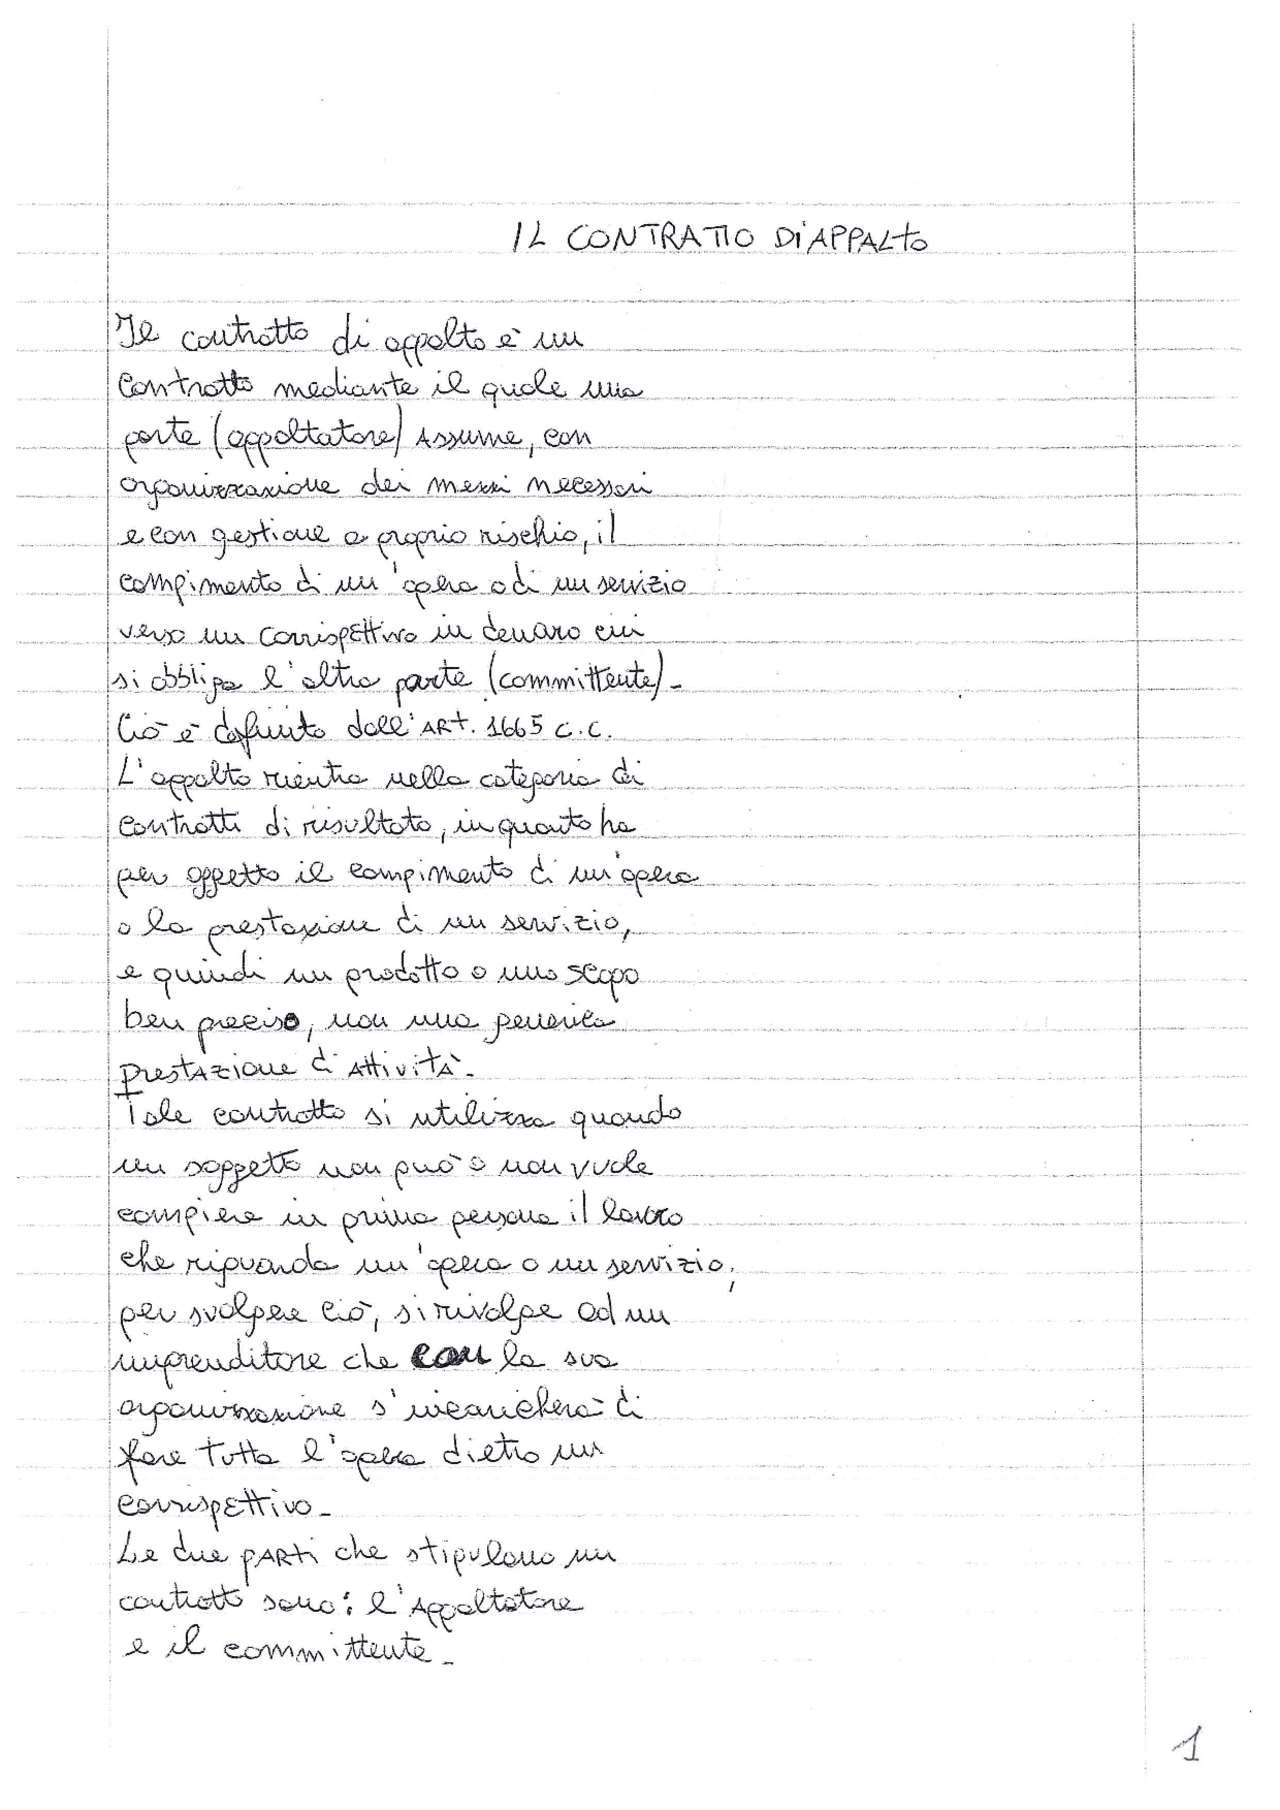 IL CONTRATTO DI APPALTO
Il contratto di appalto è un
contratto mediante il quale una
parte (appaltatore) Assume, con
organizzazione dei mezzi necessari
e con gestione a proprio rischio, il
compimento di un'opera o di un servizio
verso un corrispettivo in denaro cui
si obbliga l'altra parte (committente).
Ciò è definito dall'ART. 1665 c.c.
L'appalto rientra nella categoria dei
contratti di risultato, in quanto ha
per oggetto il compimento di un'opera
o la prestazione di un servizio,
e quindi un prodotto o uno scopo
ben preciso, non una generica
prestazione di attività.
Tale contratto si utilizza quando
un soggetto non può o non vuole
compiere in prima persona il lavoro
che riguarda un'opera o un servizio;
per svolgere ciò, si rivolge ad un
imprenditore che con la sua
organizzazione s'incaricherà di
fare tutta l'opera dietro un
corrispettivo.
Le due parti che stipulano un
contratto sono: l'Appaltatore
e il committente.
1